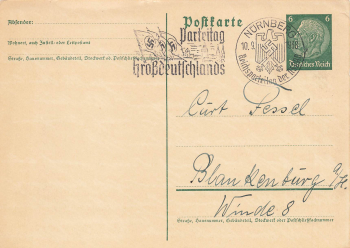 Absender:
Wohnort, auch Zustell- oder Leitpostamt
Straße, Hausnummer, Gebäudeteil, Stockwerk od. Postschließfachnummer
Postkarte
Parteitag
Großdeutschlands
NÜRNBERG
10. 9.
Reichsparteitag der
6 6
Deutsches Reich
Curt Fessel
Blankenburg a/H.
Winde 8
Straße, Hausnummer, Gebäudeteil, Stockwerk oder Postschließfachnummer